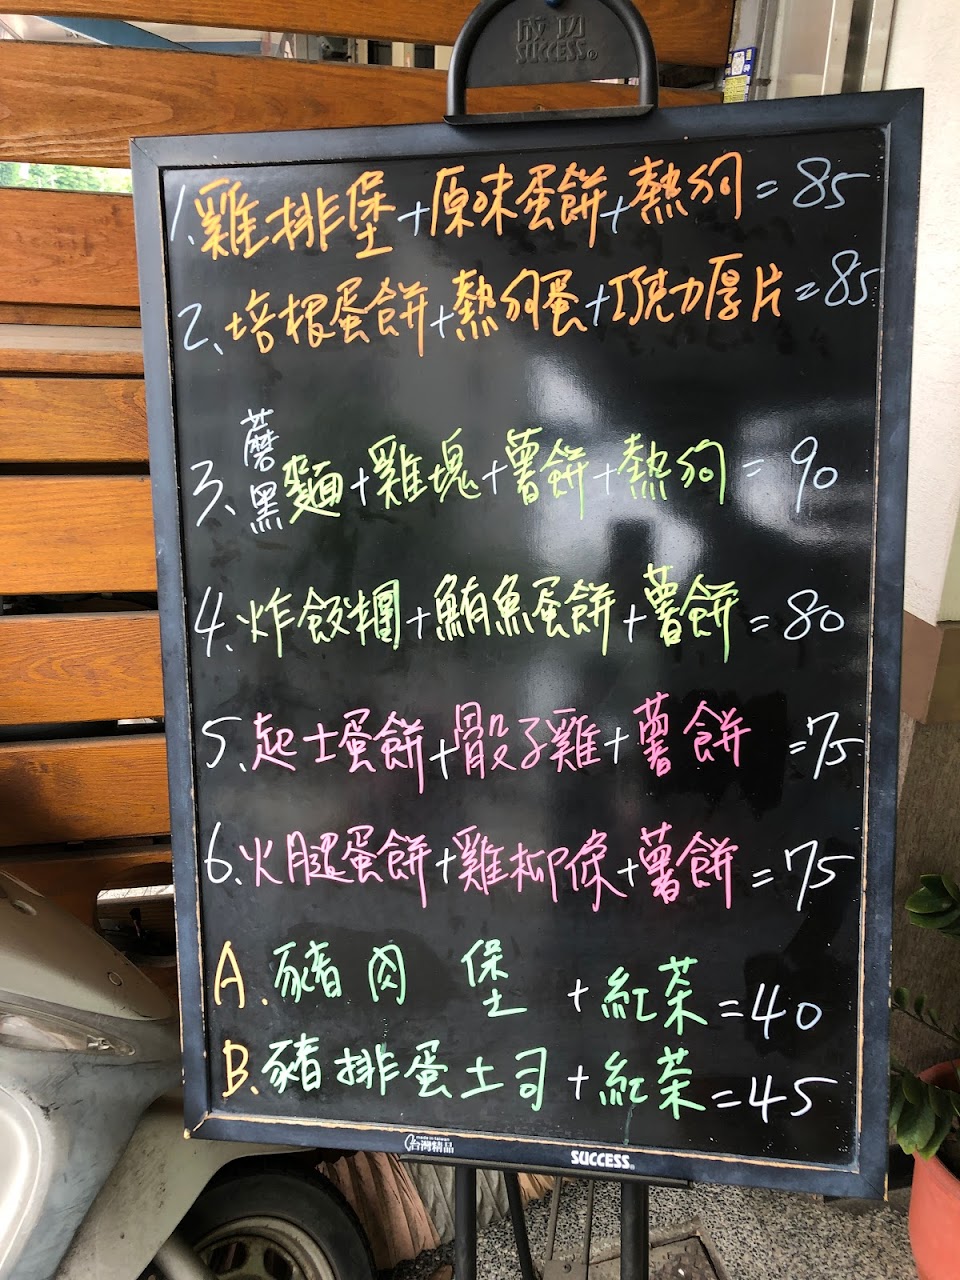 成功
SUCCESS®
1、雞排堡+原味蛋餅+熱狗=85
2、培根蛋餅+熱狗蛋+巧克力厚片=85
3、蘑黑麵+雞塊+薯餅+熱狗=90
4、炸飯糰+鮪魚蛋餅+薯餅=80
5、起士蛋餅+骰子雞+薯餅=75
6、火腿蛋餅+雞柳條+薯餅=75
A.豬肉堡+紅茶=40
B.豬排蛋土司+紅茶=45
made in taiwan
台灣精品
SUCCESS®